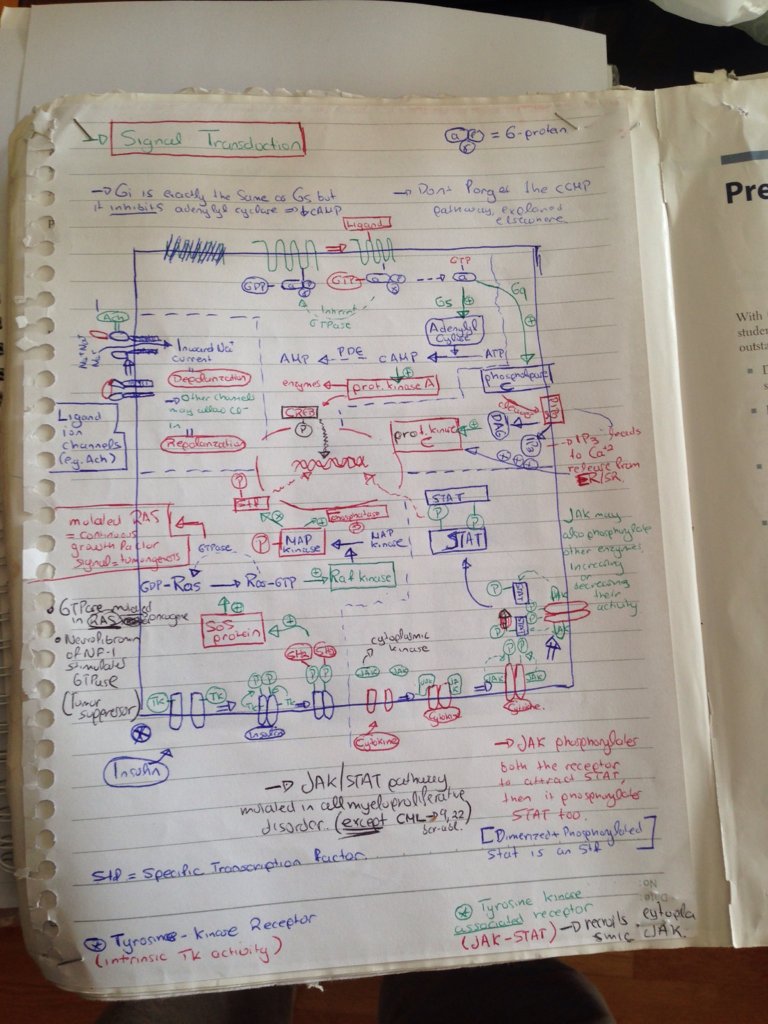 → Signal Transduction
a β γ = G-protein
→ Gi is exactly the same as Gs but
it inhibits adenylyl cyclase ⇒ ↓cAMP
→ Don't Forget the cGMP
pathway, explained
elsewhere
Ligand
GDP
GTP
GTP
Inherent
GTPase
Gs
Gq
Adenylyl
Cyclase
AMP
PDE
CAMP
ATP
phospholipase
C
Ach
Na+ Na+
Na+
→ Inward Na+
current
Depolarization
→ Other channels
may allow Cl-
in
Repolarization
Ligand
ion
channels
(e.g. Ach)
enzymes
prot. kinase A
CREB
P
prot. kinase
C
cleaves
PIP2
DAG
IP3
→ IP3 leads
to Ca+2
release from
ER/SR
P
Stf
phosphatase
STAT
P P
STAT
mutated RAS
= continuous
growth factor
signal = tumorgenesis
GTPase
P
MAP
kinase
MAP
kinase
kinase
GDP-Ras → Ras-GTP
Raf kinase
JAK may
also phosphorylate
other enzymes,
increasing
or
decreasing
their
activity
• GTPase mutated
in RAS oncogene
• Neurofibromin
of NF-1
stimulates
GTPase
(Tumor
suppressor)
SoS
protein
SH2
SH2
cytoplasmic
kinase
P
STAT
P
STAT
JAK
JAK
TK
TK
P P
TK
TK
P P
Insulin
JAK
JAK
Cytokine
JAK
JAK
Cytokine
P P
JAK
Cytokine
Insulin
→ JAK/STAT pathway
mutated in all myeloproliferative
disorder. (except CML → 9,22
bcr-abl.)
→ JAK phosphorylates
both the receptor
to attract STAT,
then it phosphorylates
STAT too.
[Dimerized + Phosphorylated
Stat is an Stf]
Stf = Specific Transcription Factor.
* Tyrosine-kinase Receptor
(intrinsic TK activity)
* Tyrosine kinase
associated receptor
(JAK-STAT) → recruits cytopla
smic JAK.
Pre
With
studen
outsta